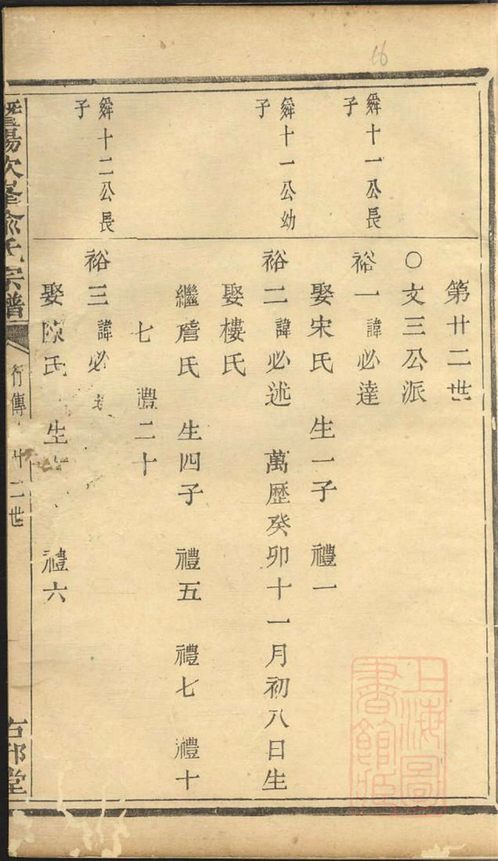 16
第廿二世
○文三公派
舜十一公長子
裕一 諱必達
娶宋氏 生一子 禮一
舜十一公幼子
裕二 諱必述 萬歷癸卯十一月初八日生
娶樓氏
繼詹氏 生四子 禮五 禮七 禮十
七 禮二十
舜十二公長子
裕三 諱必
娶陳氏 生 禮六
暨陽次峯俞氏宗譜
行傳 廿二世
右邨堂
上海圖書館藏